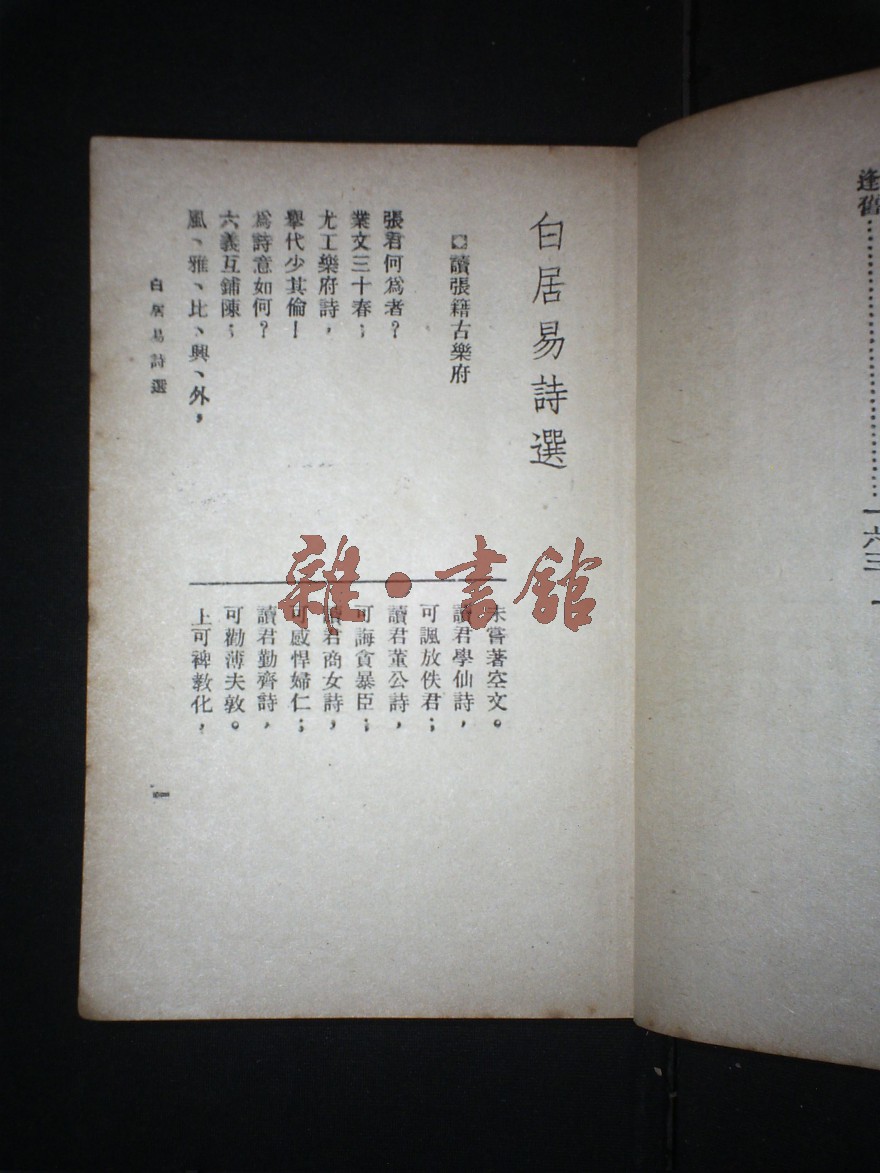 逢舊……一六三
白居易詩選
讀張籍古樂府
張君何爲者？
業文三十春；
尤工樂府詩，
舉代少其倫！
爲詩意如何？
六義互鋪陳；
風、雅、比、興、外，
未嘗著空文。
讀君學仙詩，
可諷放佚君；
讀君董公詩，
可誨貪暴臣；
讀君商女詩，
可感悍婦仁；
讀君勤齊詩，
可勸薄夫敦。
上可裨敎化，
白居易詩選
一
雜·書館